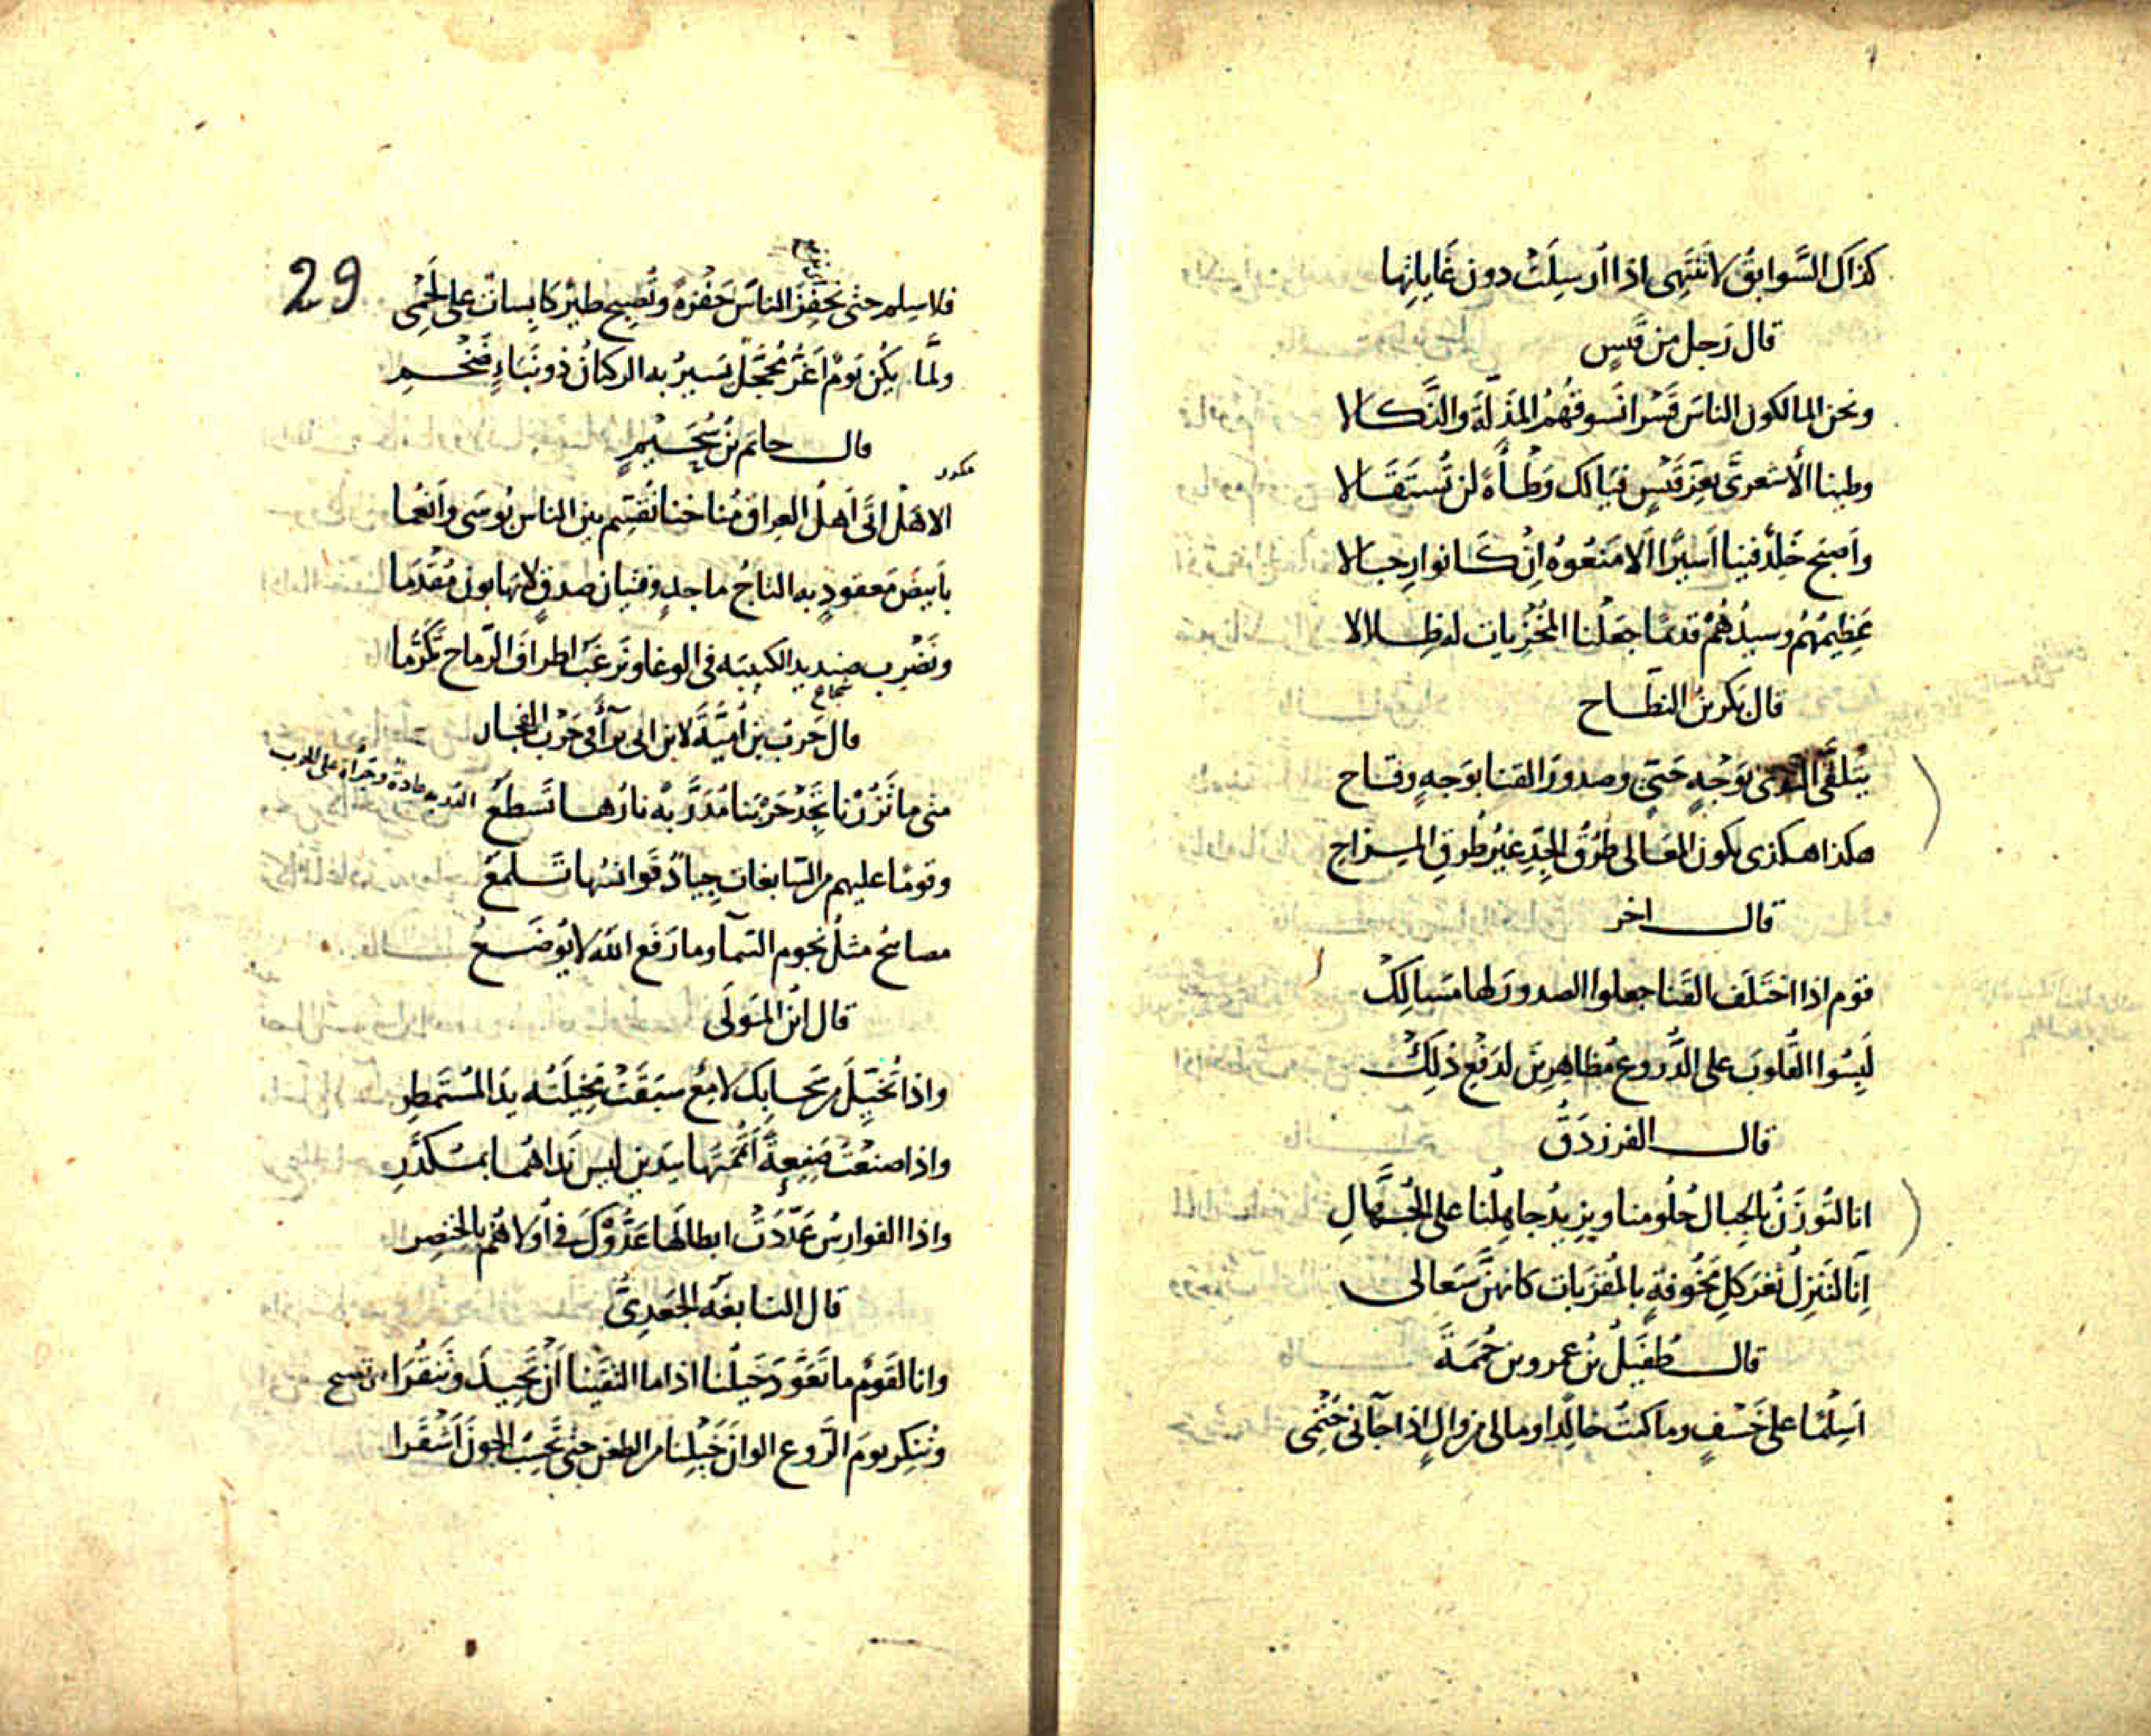 كذاك السَّوابقُ لا تنتهى اذا اُرسِلَتْ دون غَاياتِها
قال رَجل من قَيسٍ
ونحن المالكون الناسَ قَسْرا نَسوقُهُمُ المَذَلّةَ والنَّكالا
وطِينا الأشعرىَّ بعِزّ قَيْسٍ فيَالك وَطْأةً لن تُستَقَالا
وأصبح خلدٌ فينا أسيرًا ألا مَنَعُوهُ إنْ كَانوا رِجالا
عَظِيمُهُم وسيدُهُمْ قديمًا جعَلْنا المُخْزِيات له ظِلالا
قال بَكر بنُ النطَّاح
يتلقَّى الندى بوَجْهٍ حَيىٍّ وصدورَ القنا بوَجهٍ وقاح
هكذا هكذى تكون المعَالى طُرُقُ الجِدِّ غيْرُ طُرقِ المِزاح
قال اخر
قوم اذا اختَلَف القَنا جعلوا الصدورَ لها مَسَالِكْ
لَبِسُوا القُلوبَ على الدُّروع مُظاهِرِينَ لدَفْعِ ذٰلِكْ
قال الفرزدَقُ
انا لتُوزَنُ بالجبال حُلُومنا ويزيدُ جاهِلُنا على الجُهَّالِ
إنّا لَنَنزِلُ ثَغرَ كلِّ مَخُوفَةٍ بالمُقرَبات كانهنَّ سَعالى
قال طُفَيلُ بنُ عمرو بن حُمَمَةَ
اَسِلْمًا على خَسْفٍ وما كنتُ خالِدًا ومالى من والٍ اذا جآنى حَتْمِى
29
فلا سِلم حتى تَحفِزَ الناسَ حَفْزةً وتُصبِح طيرٌ كابِسات على لَحْمِى
ولَمَّا يكُن يَومٌ اَغَرُّ مُحَجَّلٌ تَسيرُ به الركبانُ ذو نَبَاءٍ ضَخْمِ
قال حاتم بنُ سُحَيْمٍ
الا هَلْ اتى أهلَ العِراق مُناخنا نُقَسِّم بين الناس بُوسَى واَنْعُما
بأبيَضَ مَعقودٍ به التاجُ ماجِدٍ وفتيانِ صدقٍ لا يَهابون مُقْدَما
ونَضْرِب صنديد الكتيبَه فى الوغا ونَرغَبُ اطرافَ الرّماحِ تَكَرُّما
شجاع
قال حَربُ بنُ اُمَيَّةَ لابن ابى برآء فى حَرْب الفِجار
متى ما تَزُرْنا تَجِدْ حَرْبَنا مُدَرَّبةً نارُها تَسطَعُ
وقومًا عليهم من السّابغات جِيادٌ قَوانسُها تَلمَعُ
مصابيحُ مثلُ نجوم السّمآ وما رَفَع اللّه لا يُوضَعُ
قال ابنُ المَوْلَى
واذا تُخُيِّلَ من سَحابِك لامِعٌ سبَقَتْ مَخِيلَتُه يدَ المُستَمطِرِ
واذا صنَعْتَ صَنِيعةً أتمَمتَها بيَدينِ ليس نَداهُما بمُكدَّرِ
واذا الفوارِسُ عَدَّدَتْ ابطالَها عَدُّوكَ فى أولاهُم بالخِنصِرِ
قال النابغَه الجَعدِىُّ
وانا لقَومٌ ما نُعَوِّدُ خَيلَنا اذا ما التقَيْنا أنْ تَحِيدَ وتَنفُرَا
وتُنكِر يومَ الرَّوع الوانَ خَيْلِنا من الطعن حتى تَحسِبَ الجَونَ اَشْقَرا